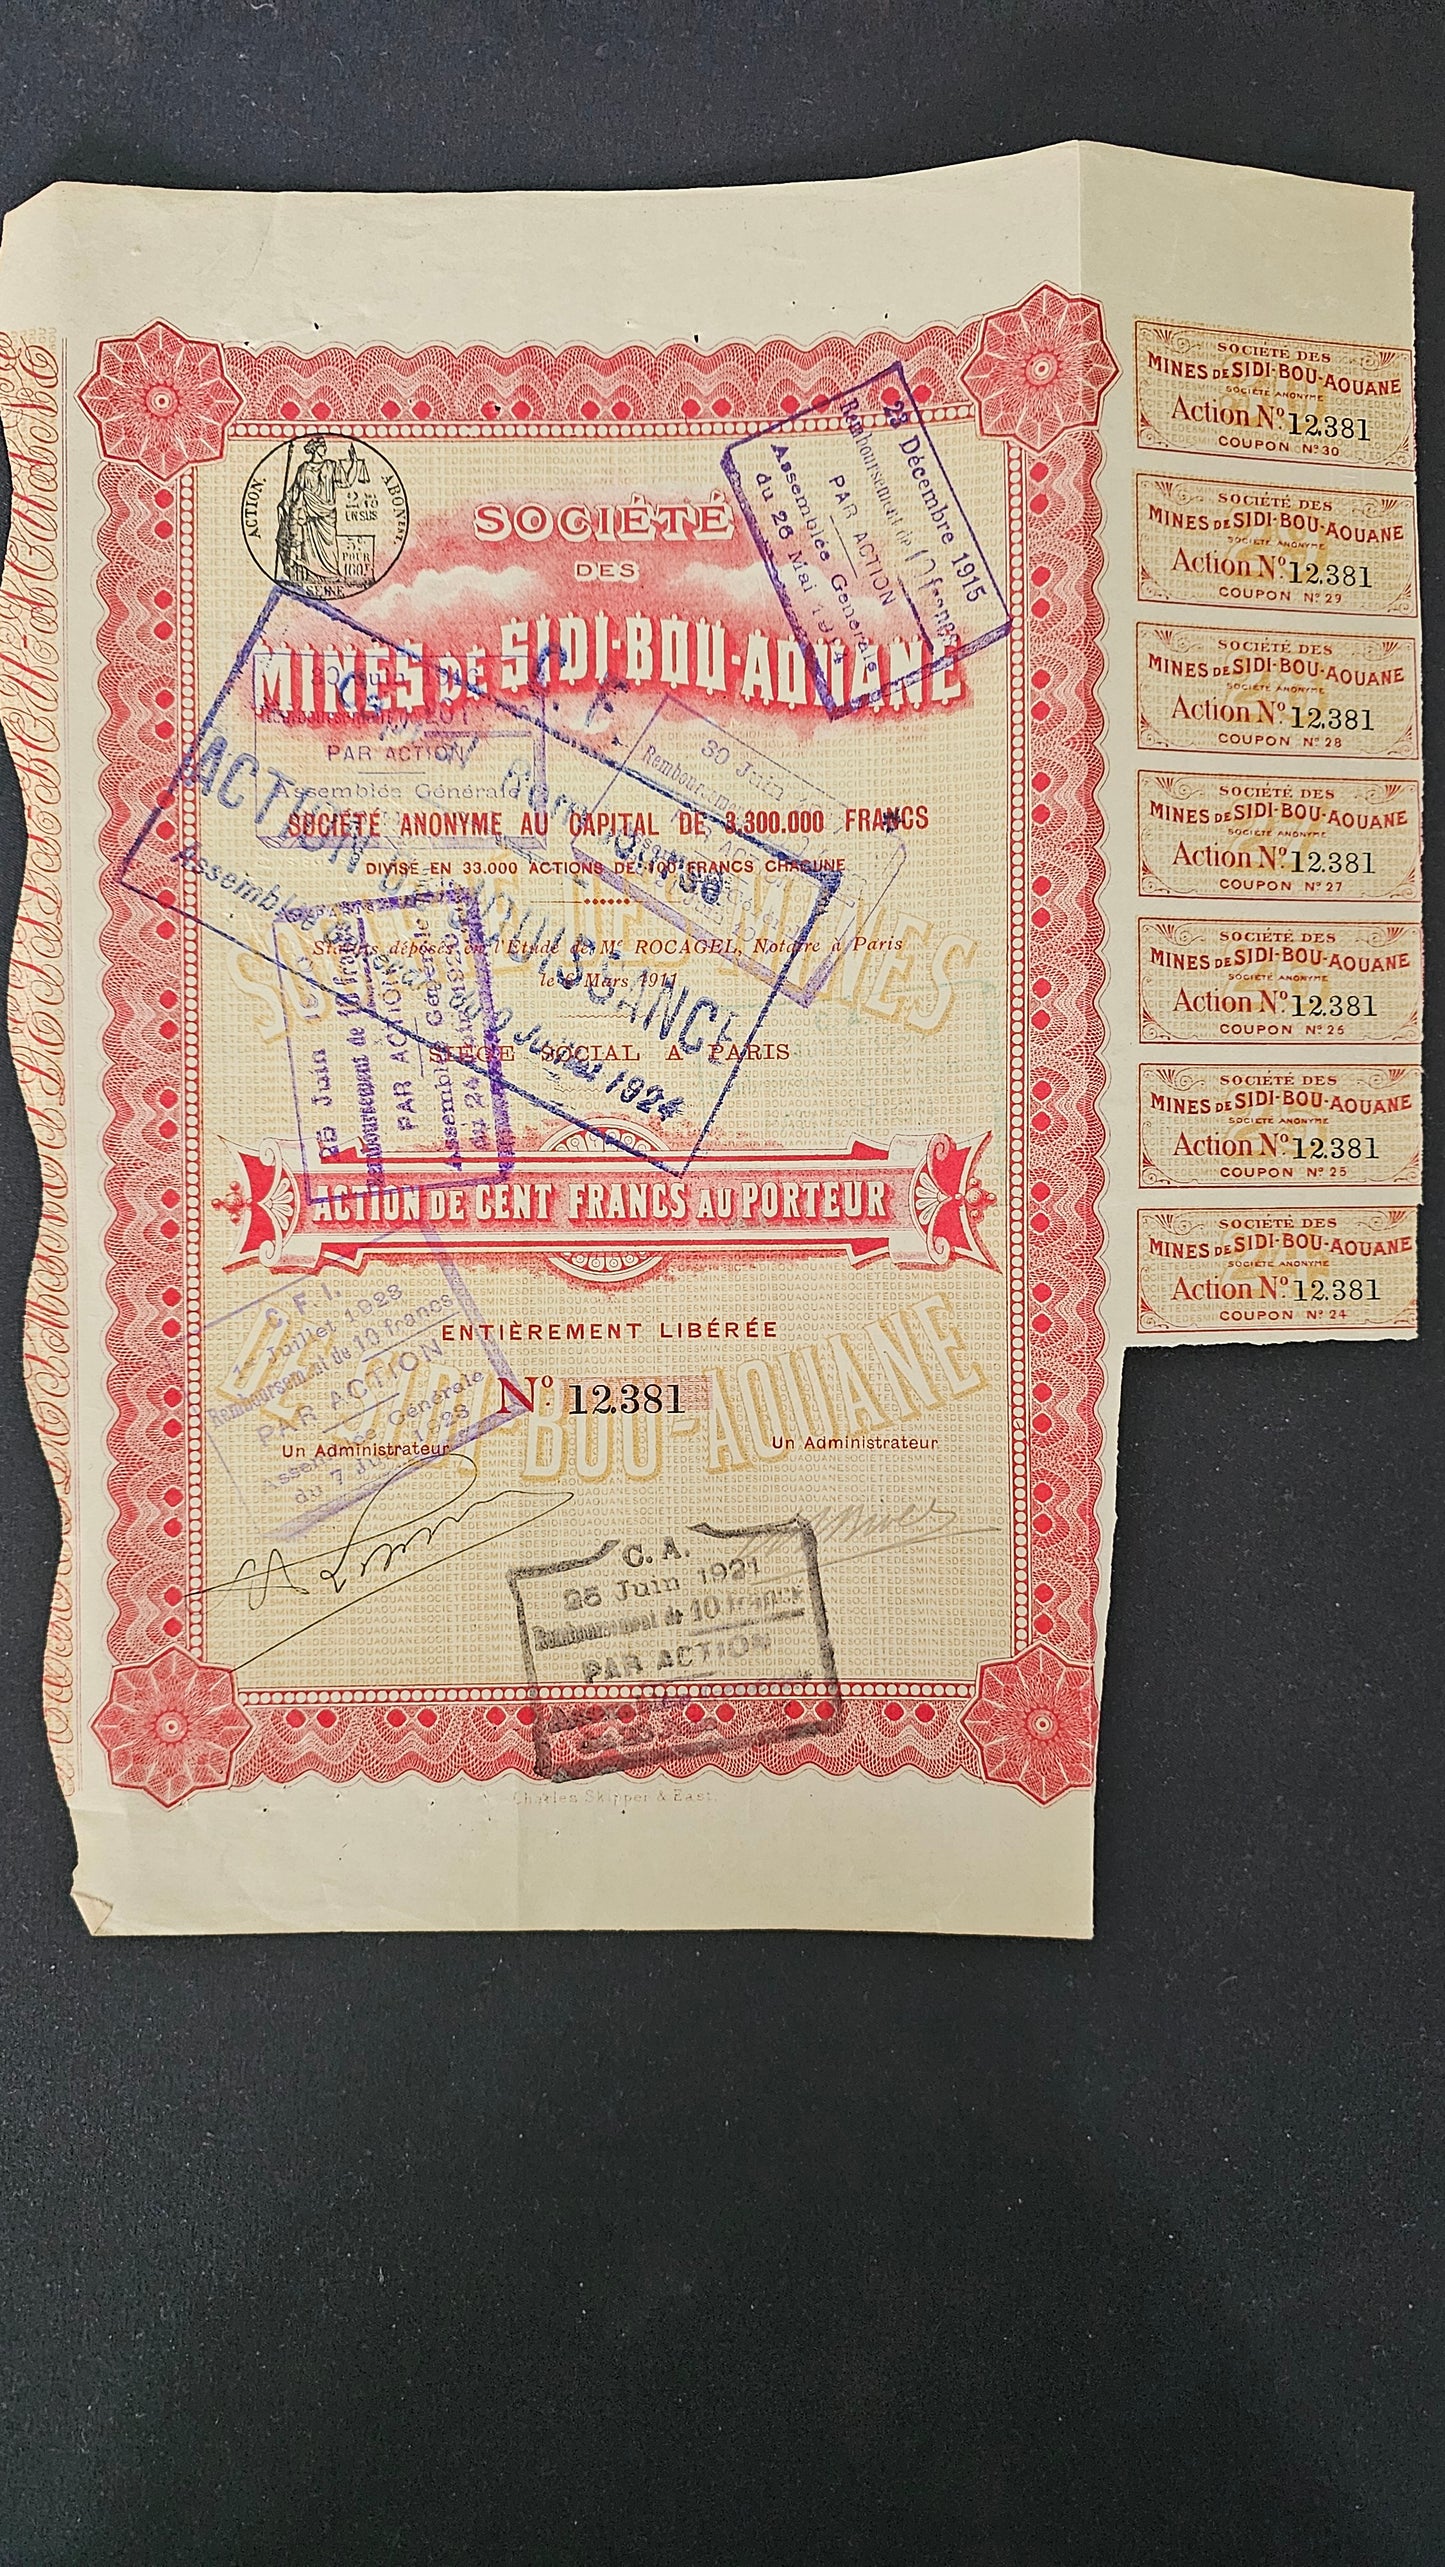 ACTION.
ABONNE.
SEINE
SOCIÉTÉ
DES
MINES DE SIDI-BOU-AOUANE
SOCIÉTÉ ANONYME AU CAPITAL DE 3.300.000 FRANCS
DIVISÉ EN 33.000 ACTIONS DE 100 FRANCS CHACUNE
Statuts déposés en l'Étude de Me ROCAGEL, Notaire à Paris
le 6 Mars 1911
SIÈGE SOCIAL A PARIS
ACTION DE CENT FRANCS AU PORTEUR
ENTIÈREMENT LIBÉRÉE
No. 12.381
Un Administrateur
Un Administrateur
Charles Skipper & East.
SOCIÉTÉ DES MINES
DE SIDI-BOU-AOUANE
23 Décembre 1915
Remboursement de 10 francs
PAR ACTION
Assemblée Générale
du 26 Mai
30 Juin
Remboursement
PAR ACTION
Assemblée Générale
30 Juin
C. F.
ACTION DE JOUISSANCE
Juillet 1924
25 Juin
Remboursement de 10 francs
PAR ACTION
Assemblée Générale
du 24
C. F. I.
1er Juillet 1923
Remboursement de 10 francs
PAR ACTION
Assemblée Générale
du 7
1923
C. A.
25 Juin 1921
Remboursement de 10 francs
PAR ACTION
SOCIÉTÉ DES
MINES DE SIDI-BOU-AOUANE
SOCIÉTÉ ANONYME
Action No. 12.381
COUPON No. 30
SOCIÉTÉ DES
MINES DE SIDI-BOU-AOUANE
SOCIÉTÉ ANONYME
Action No. 12.381
COUPON No. 29
SOCIÉTÉ DES
MINES DE SIDI-BOU-AOUANE
SOCIÉTÉ ANONYME
Action No. 12.381
COUPON No. 28
SOCIÉTÉ DES
MINES DE SIDI-BOU-AOUANE
SOCIÉTÉ ANONYME
Action No. 12.381
COUPON No. 27
SOCIÉTÉ DES
MINES DE SIDI-BOU-AOUANE
SOCIÉTÉ ANONYME
Action No. 12.381
COUPON No. 26
SOCIÉTÉ DES
MINES DE SIDI-BOU-AOUANE
SOCIÉTÉ ANONYME
Action No. 12.381
COUPON No. 25
SOCIÉTÉ DES
MINES DE SIDI-BOU-AOUANE
SOCIÉTÉ ANONYME
Action No. 12.381
COUPON No. 24